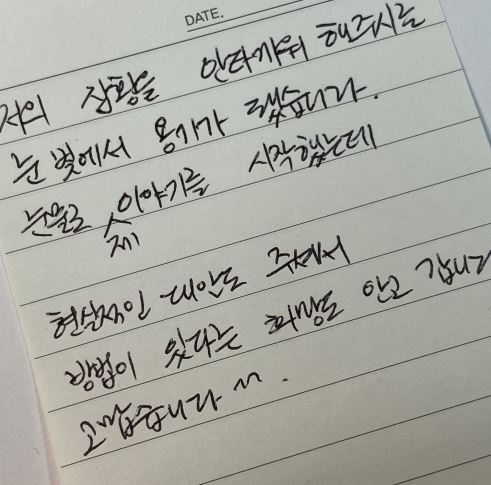 DATE.
저의 상황을 안타까워 해주시는
눈 빛에서 용기가 났습니다.
눈물로 제 이야기를 시작했는데
현실적인 대안도 주셔서
방법이 있다는 희망도 안고 갑니다
고맙습니다 ^^.